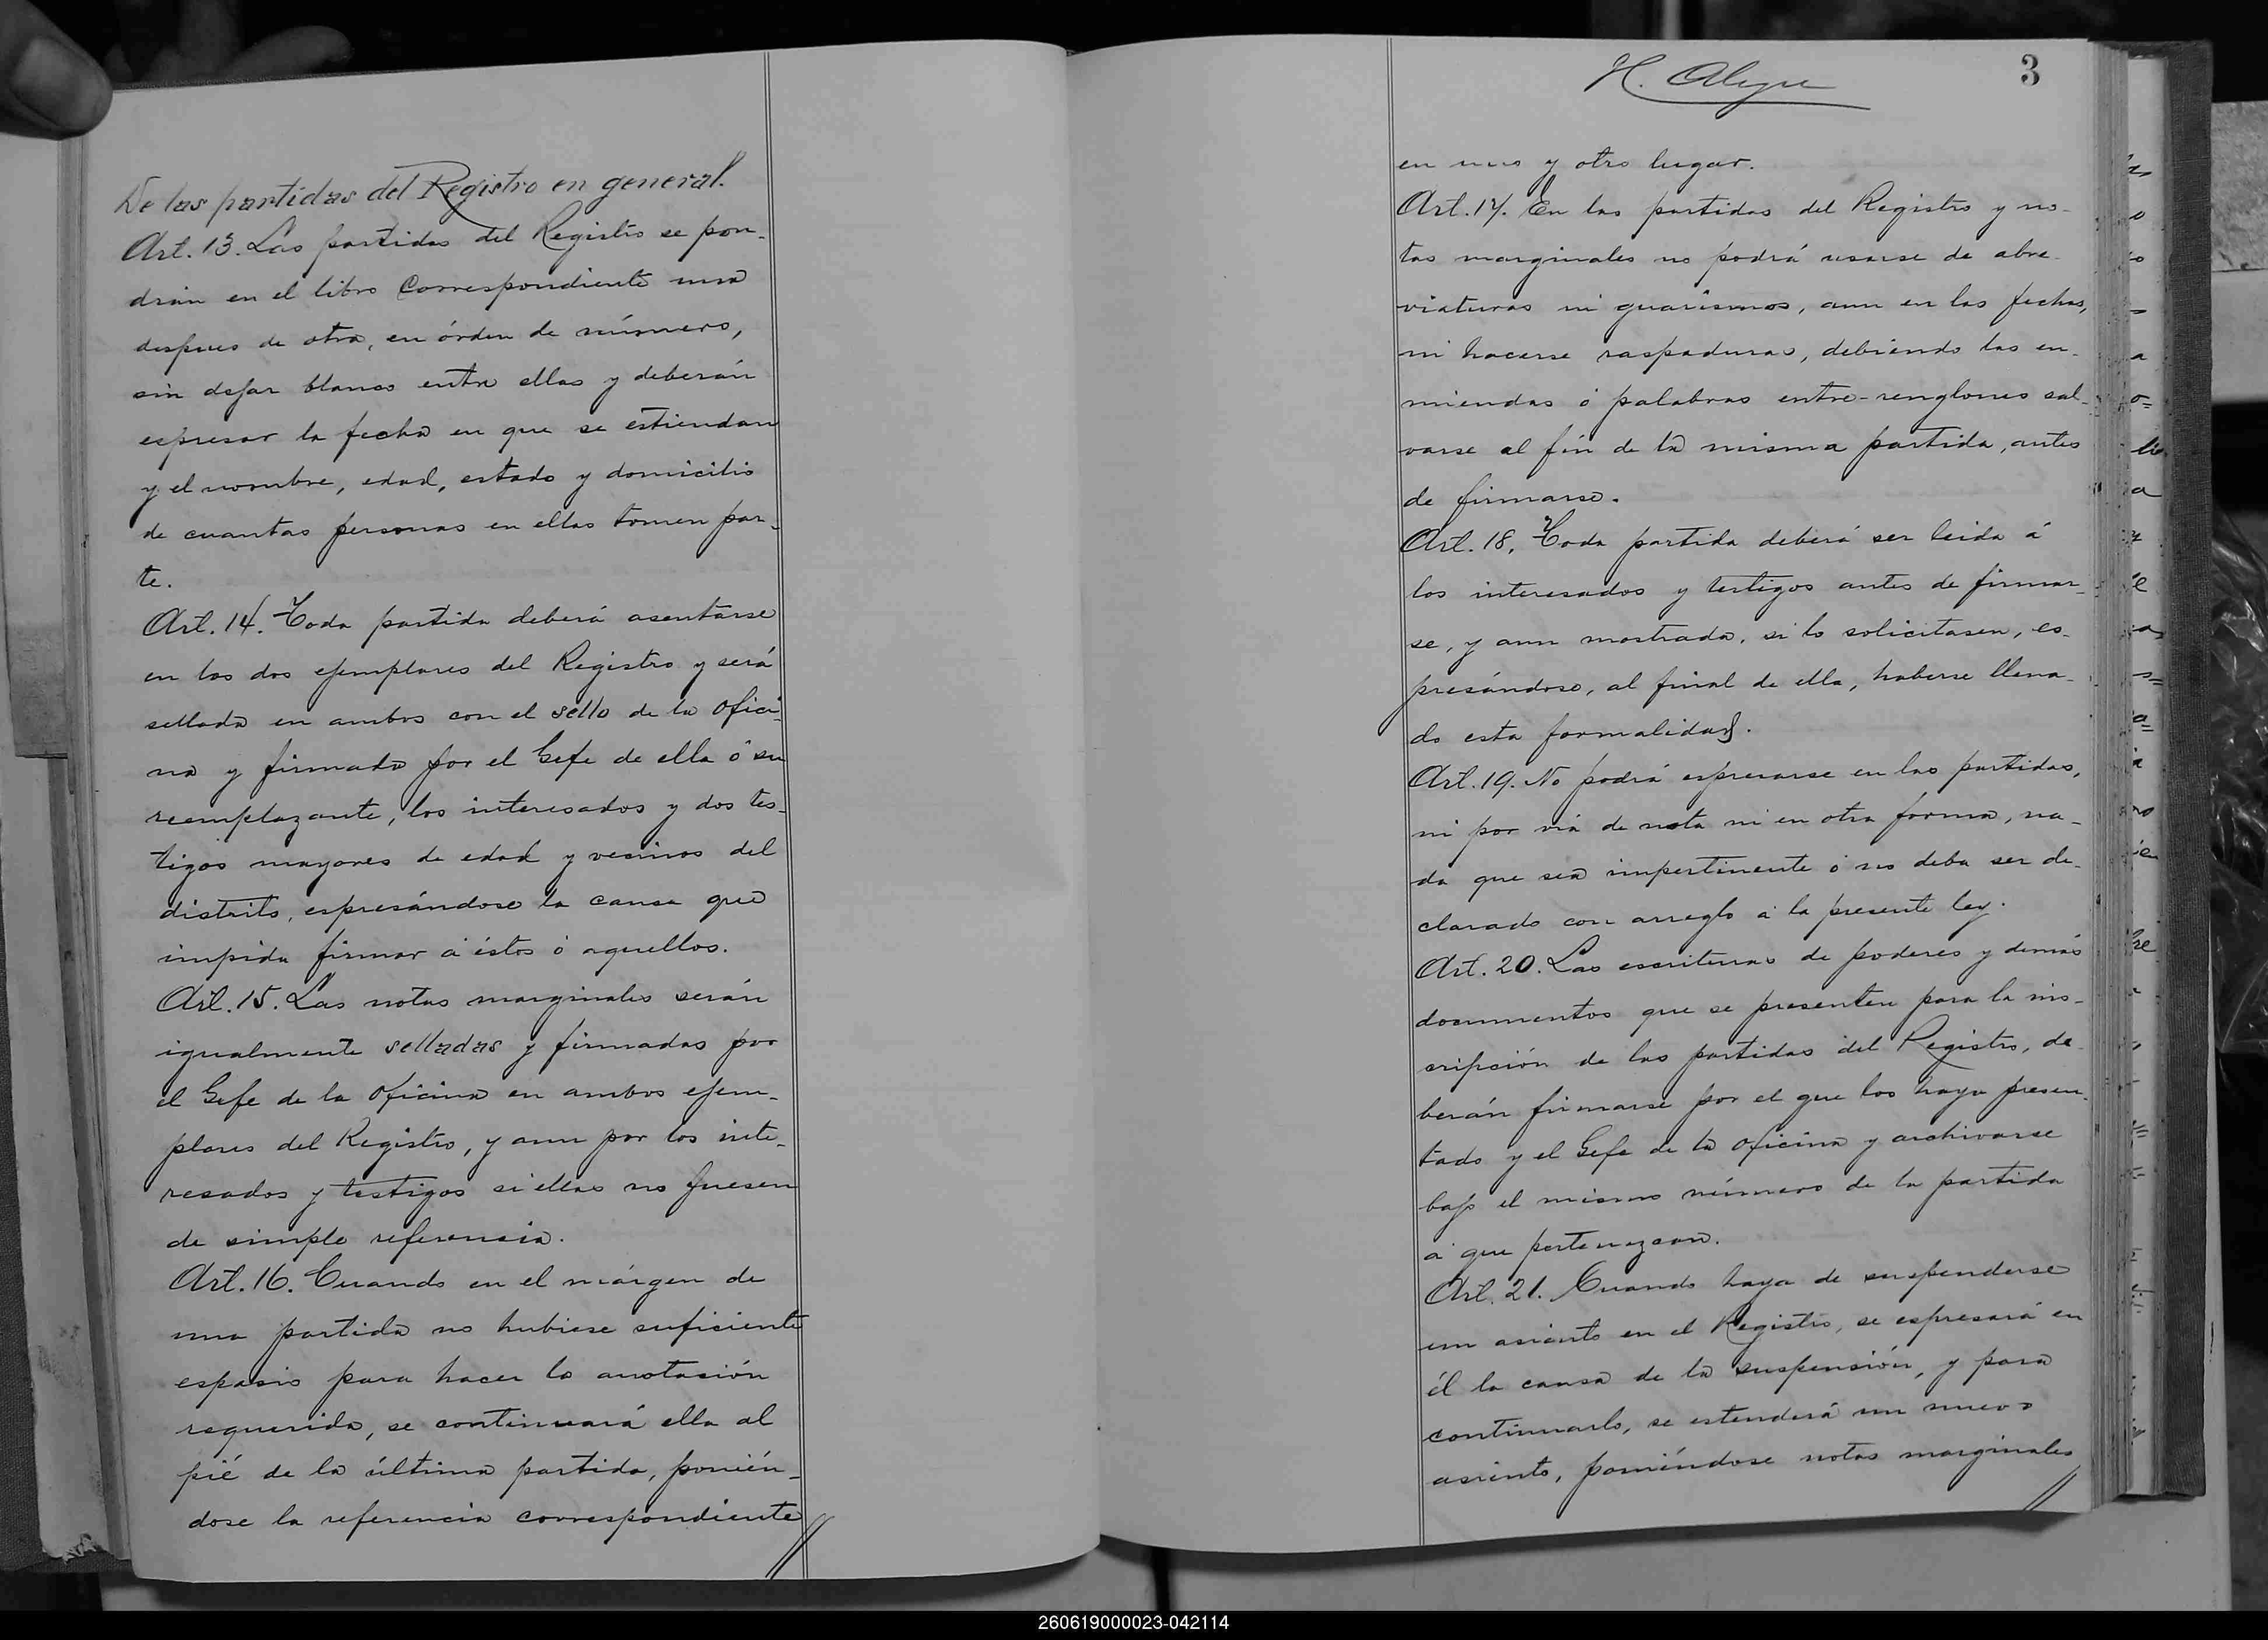 De las partidas del Registro en general.
Art. 13. Las partidas del Registro se pon-
drán en el libro correspondiente una
despues de otra, en órden de número,
sin dejar blanco entre ellas y deberán
espresar la fecha en que se estiendan
y el nombre, edad, estado y domicilio
de cuantas personas en ellas tomen par-
te.
Art. 14. Toda partida deberá asentarse
en los dos ejemplares del Registro y será
sellada en ambos con el sello de la ofici-
na y firmada por el Gefe de ella ó su
reemplazante, los interesados y dos tes-
tigos mayores de edad y vecinos del
distrito, espresándose la causa que
impida firmar á éstos ó aquellos.
Art. 15. Las notas marginales serán
igualmente selladas y firmadas por
el Gefe de la oficina en ambos ejem-
plares del Registro, y aun por los inte-
resados y testigos si ellas no fuesen
de simple referencia.
Art. 16. Cuando en el márgen de
una partida no hubiese suficiente
espasio para hacer la anotasión
requerida, se continuará ella al
pié de la última partida, ponién-
dose la referencia correspondiente
H. Alegre
3
en uno y otro lugar.
Art. 17. En las partidas del Registro y no-
tas marginales no podrá usarse de abre-
viaturas ni guarismos, aun en las fechas,
ni hacerse raspaduras, debiendo las en-
miendas ó palabras entre-renglones sal-
varse al fin de la misma partida, antes
de firmarse.
Art. 18. Toda partida deberá ser leida á
los interesados y testigos antes de firmar-
se, y aun mostrada, si lo solicitasen, es-
presándose, al final de ella, haberse llena-
do esta formalidad.
Art. 19. No podrá espresarse en las partidas,
ni por via de nota ni en otra forma, na-
da que sea impertinente ó no deba ser de-
clarado con arreglo á la presente ley.
Art. 20. Las escrituras de poderes y demás
documentos que se presenten para la ins-
cripción de las partidas del Registro, de-
berán firmarse por el que los haya presen-
tado y el Gefe de la oficina y archivarse
bajo el mismo número de la partida
á que pertenezcan.
Art. 21. Cuando haya de suspenderse
un asiento en el Registro, se espresará en
él la causa de la suspensión, y para
continuarlo, se estenderá un nuevo
asiento, poniéndose notas marginales
260619000023-042114